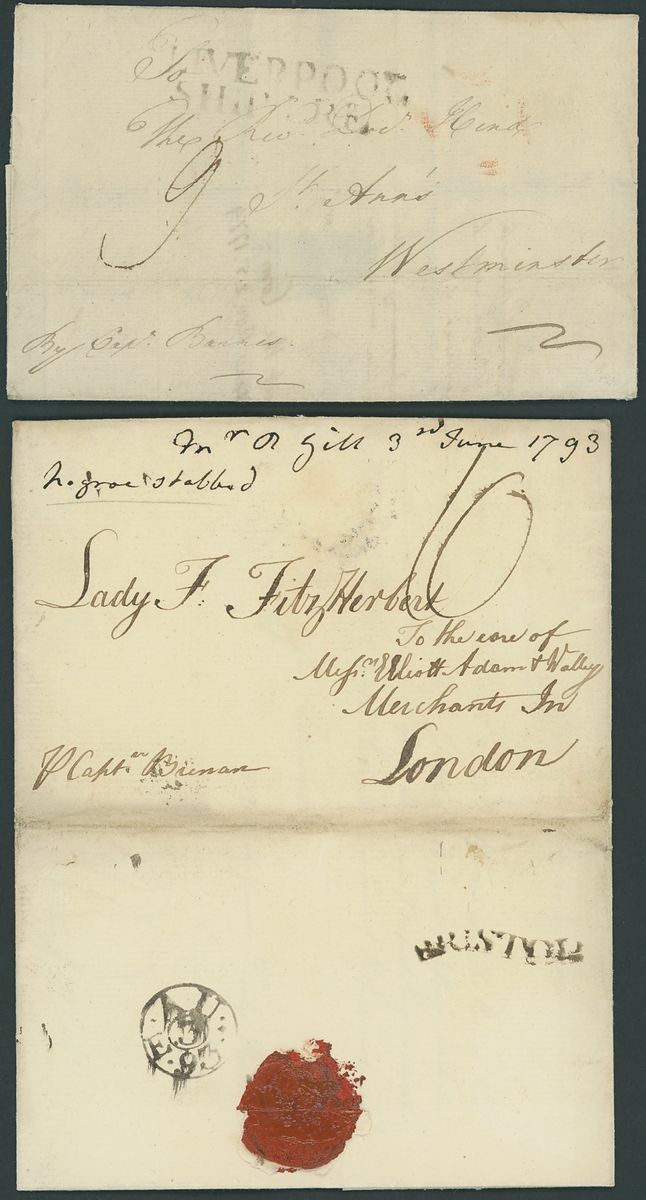 LIVERPOOL
SHIP LRE
To
The Revd. Docr. Hind
9
St. Ann's
Westminster
By Capt. Barnes.
Mr R Gill 3rd June 1793
Negroe stabbed
Lady F. FitzHerbert
To the care of
Messrs. Eliott Adam & Valley
Merchants In
London
P Captn. Brenan
BRISTOL
AU
E 93